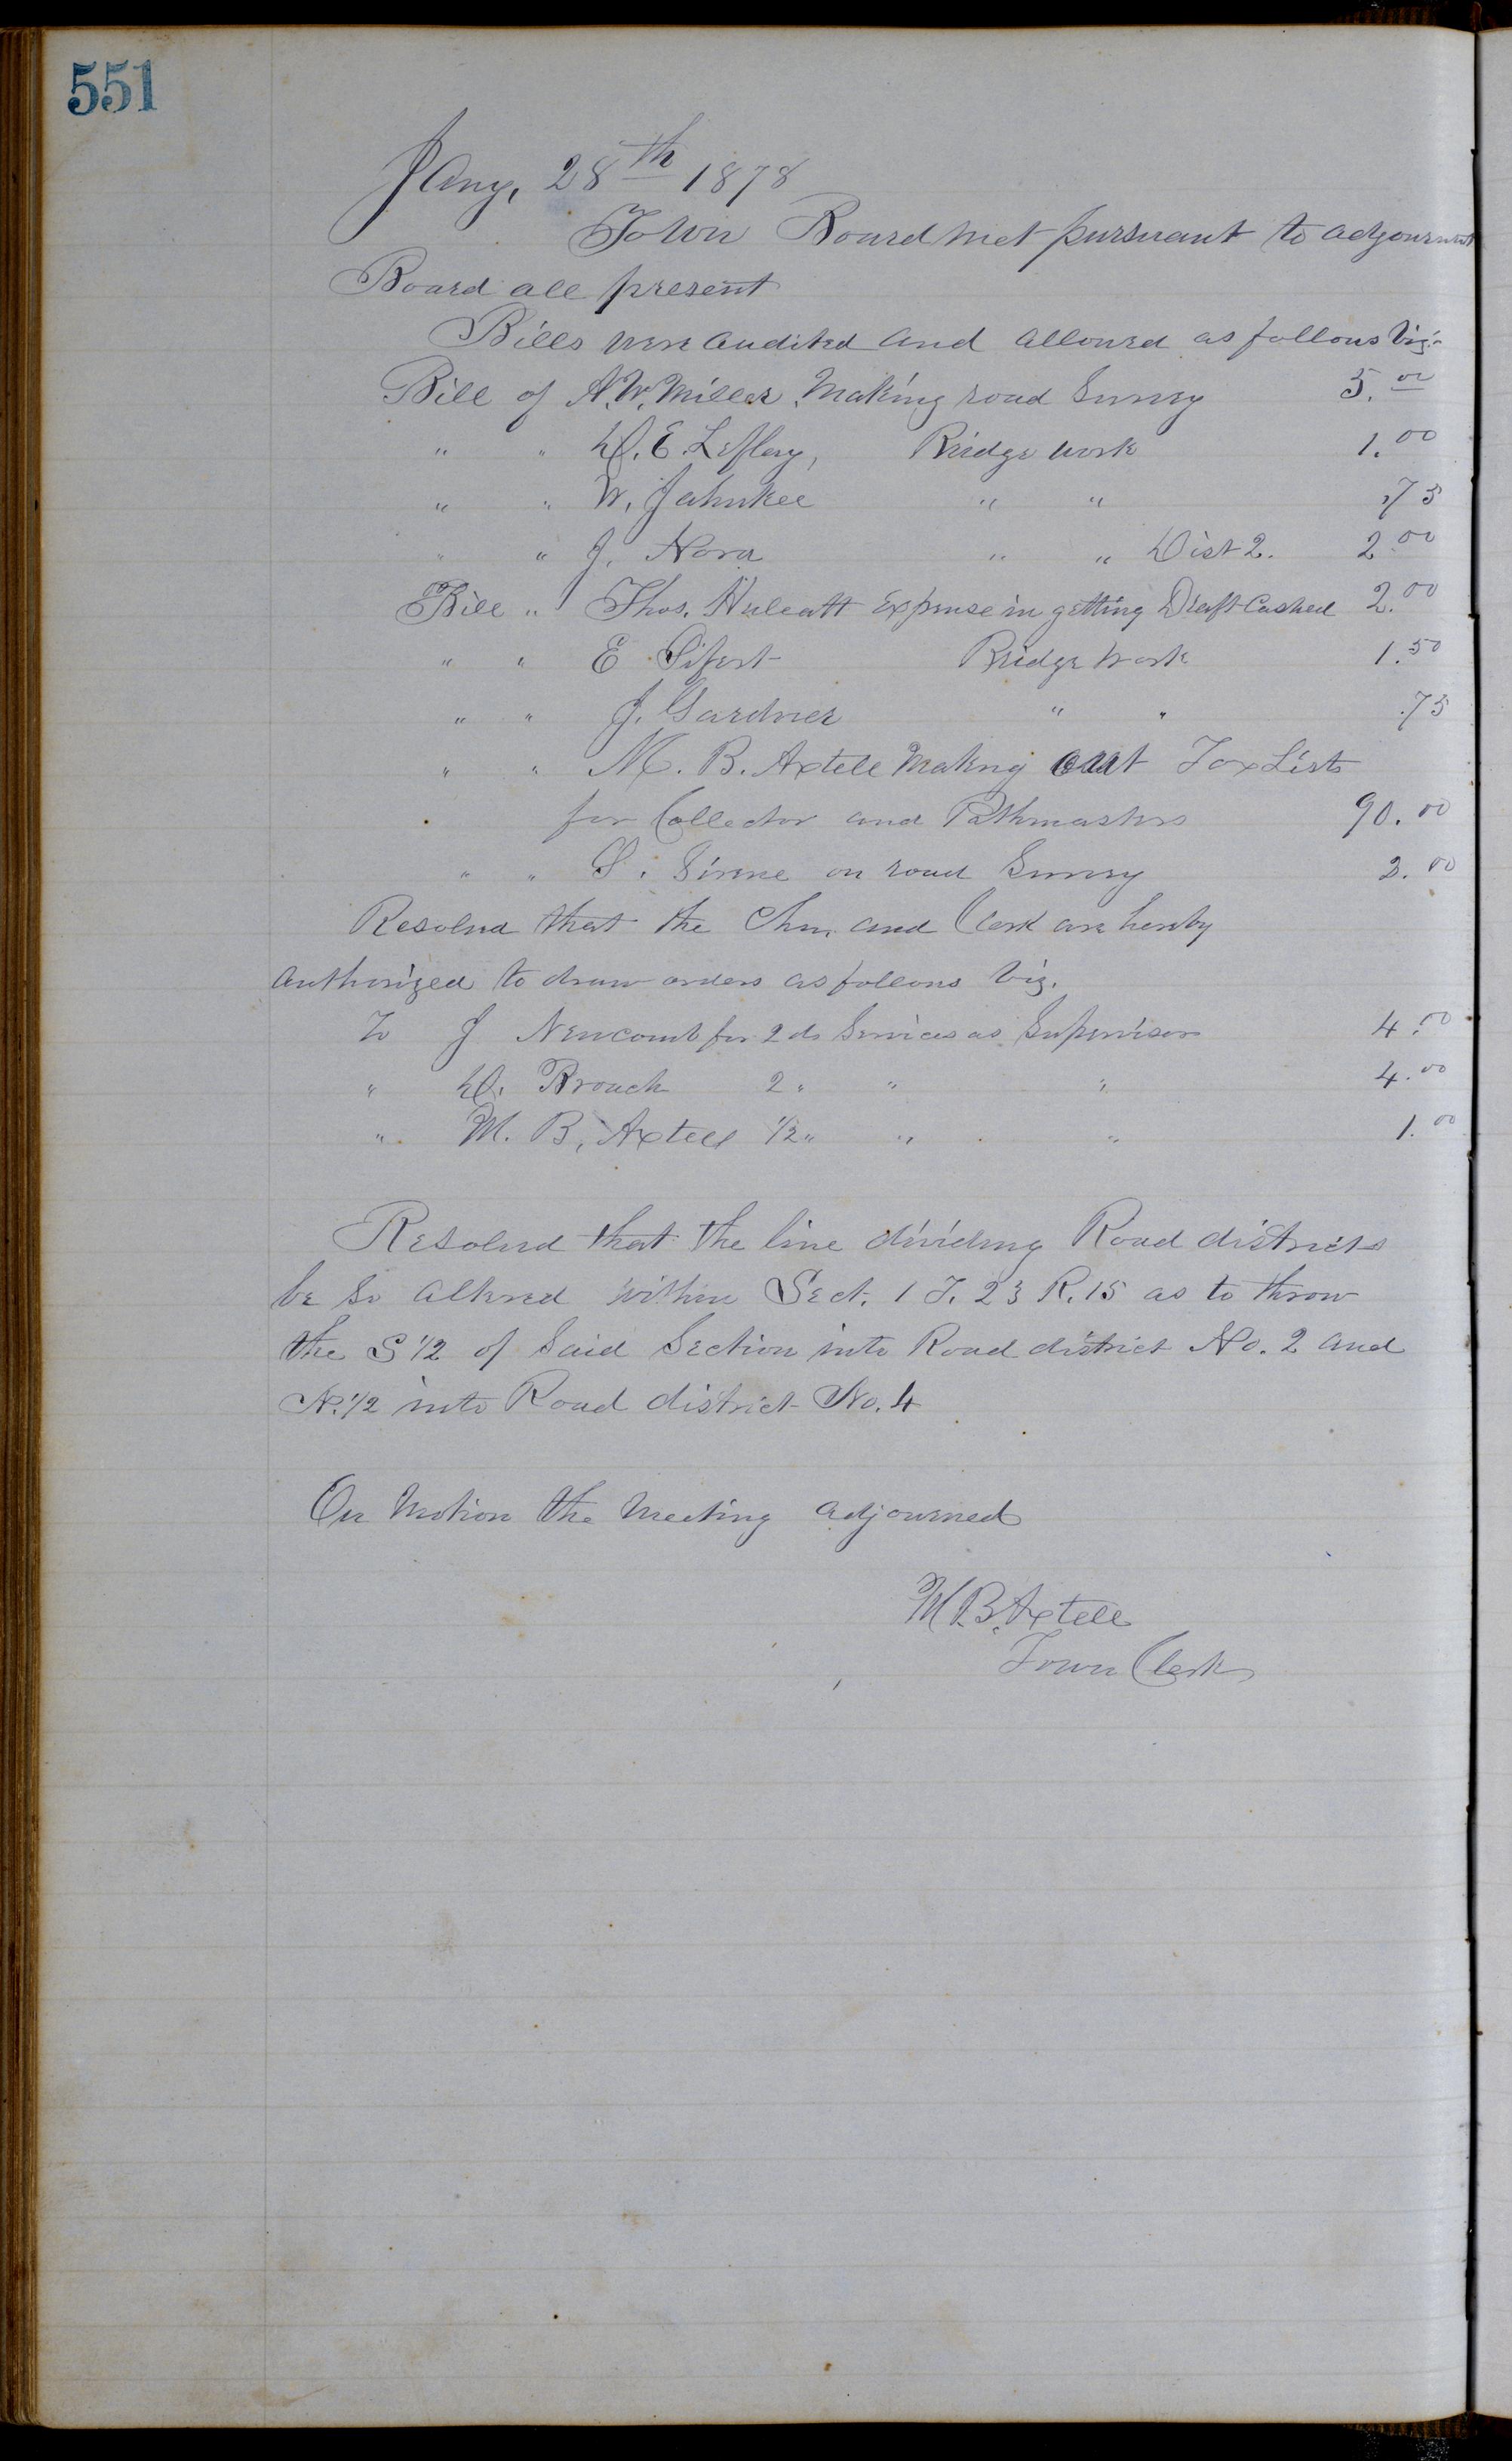 551
Jany, 28th 1878
Town Board met pursuant to adjournmt
Board all present
Bills were audited and allowed as follows Viz:
Bill of A. W. Miller Making road Survey 5.00
" " D. E. Leflay, Bridge work 1.00
" " W. Jahnkee " " .75
" " J. Nora " " Dist 2. 2.00
Bill " Thos. Huleatt Expense in getting Draft Cashed 2.00
" " E Sifert Bridge Work 1.50
" " J. Gardner " " .75
" " M. B. Axtell Making out Tax Lists
for Collector and Pathmasters 90.00
" " S. on road Survey 2.00
Resolved that the Chn. and Clerk are hereby
authorized to draw orders as follows Viz.
To J Newcomb for 2 ds Services as Supervisor 4.00
" D. Brouch 2 " " " 4.00
" M. B. Axtell 1/2 " " " 1.00
Resolved that the line dividing Road districts
be so altered within Sect. 1 T. 23 R. 15 as to throw
the S 1/2 of Said Section into Road district No. 2 and
N. 1/2 into Road district No. 4
On Motion the Meeting adjourned
M. B. Axtell
Town Clerk